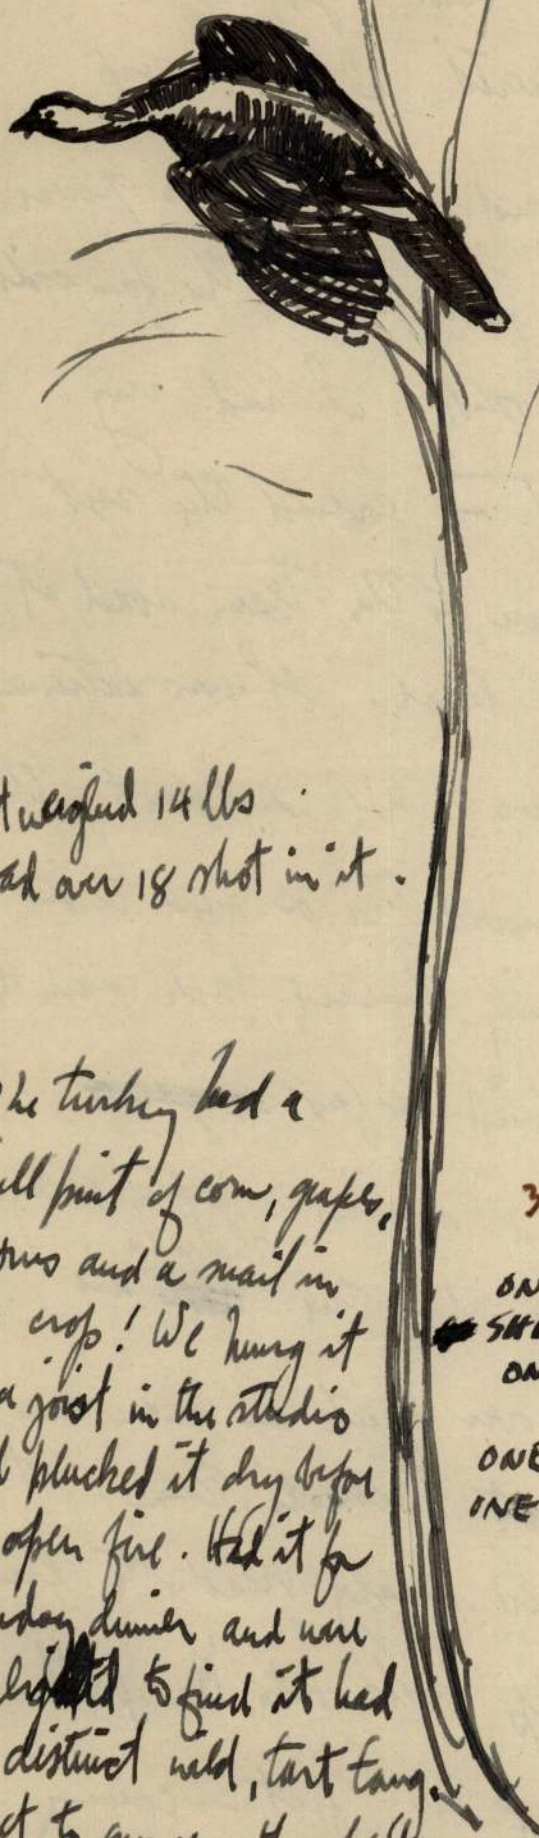 t weighed 14 lbs
ad over 18 shot in it.
he turkey had a
ll pint of corn, grapes,
orns and a snail in
crop! We hung it
a joist in the studio
d plucked it dry before
open fire. Had it for
nday dinner and were
lighted to find it had
distinct wild, tart tang.
3
ON
SHO
ON
ONE
ONE